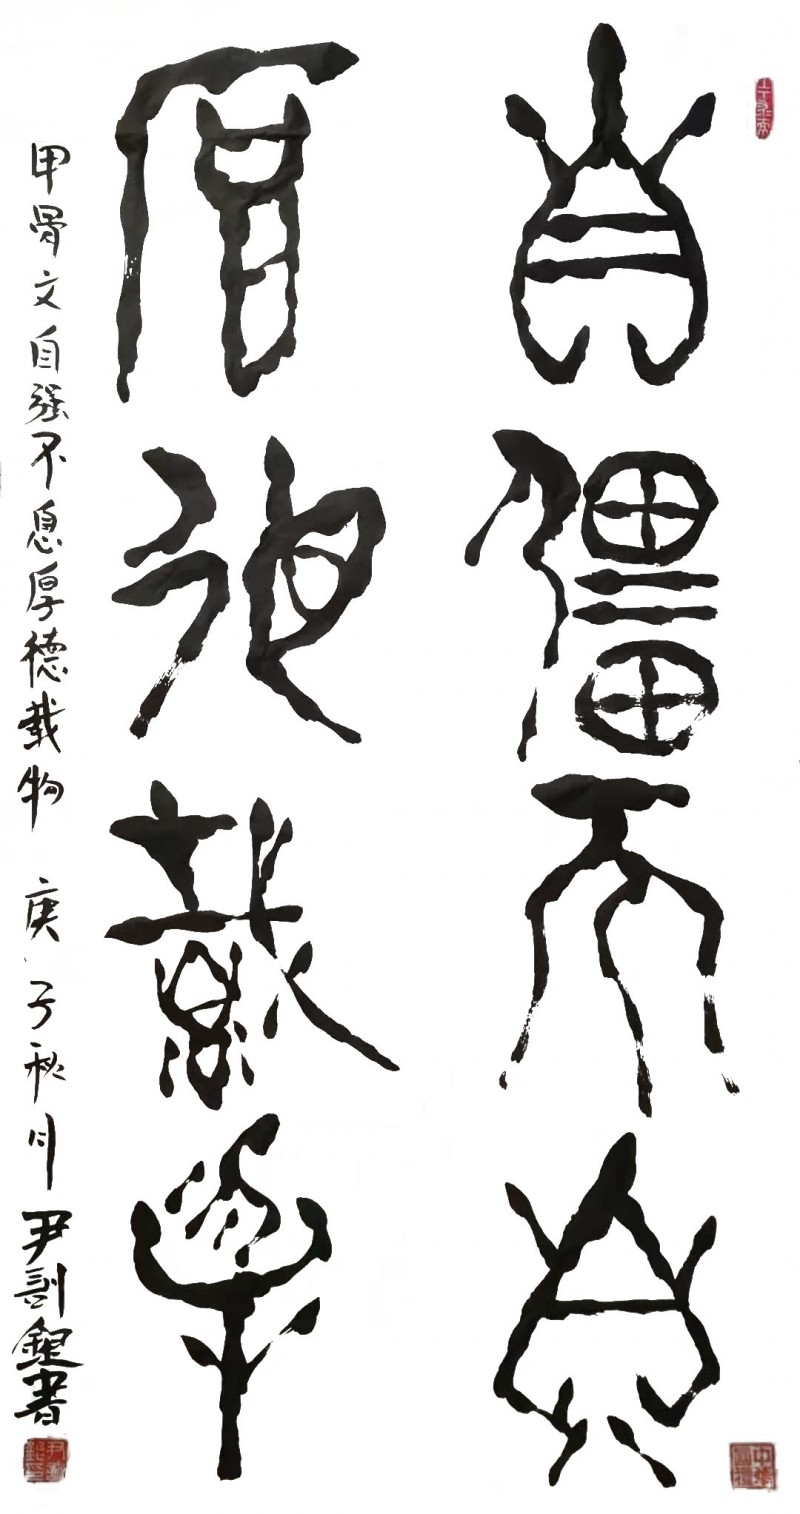 自强不息
厚德载物
甲骨文自强不息厚德载物 庚子秋月尹剑锟书